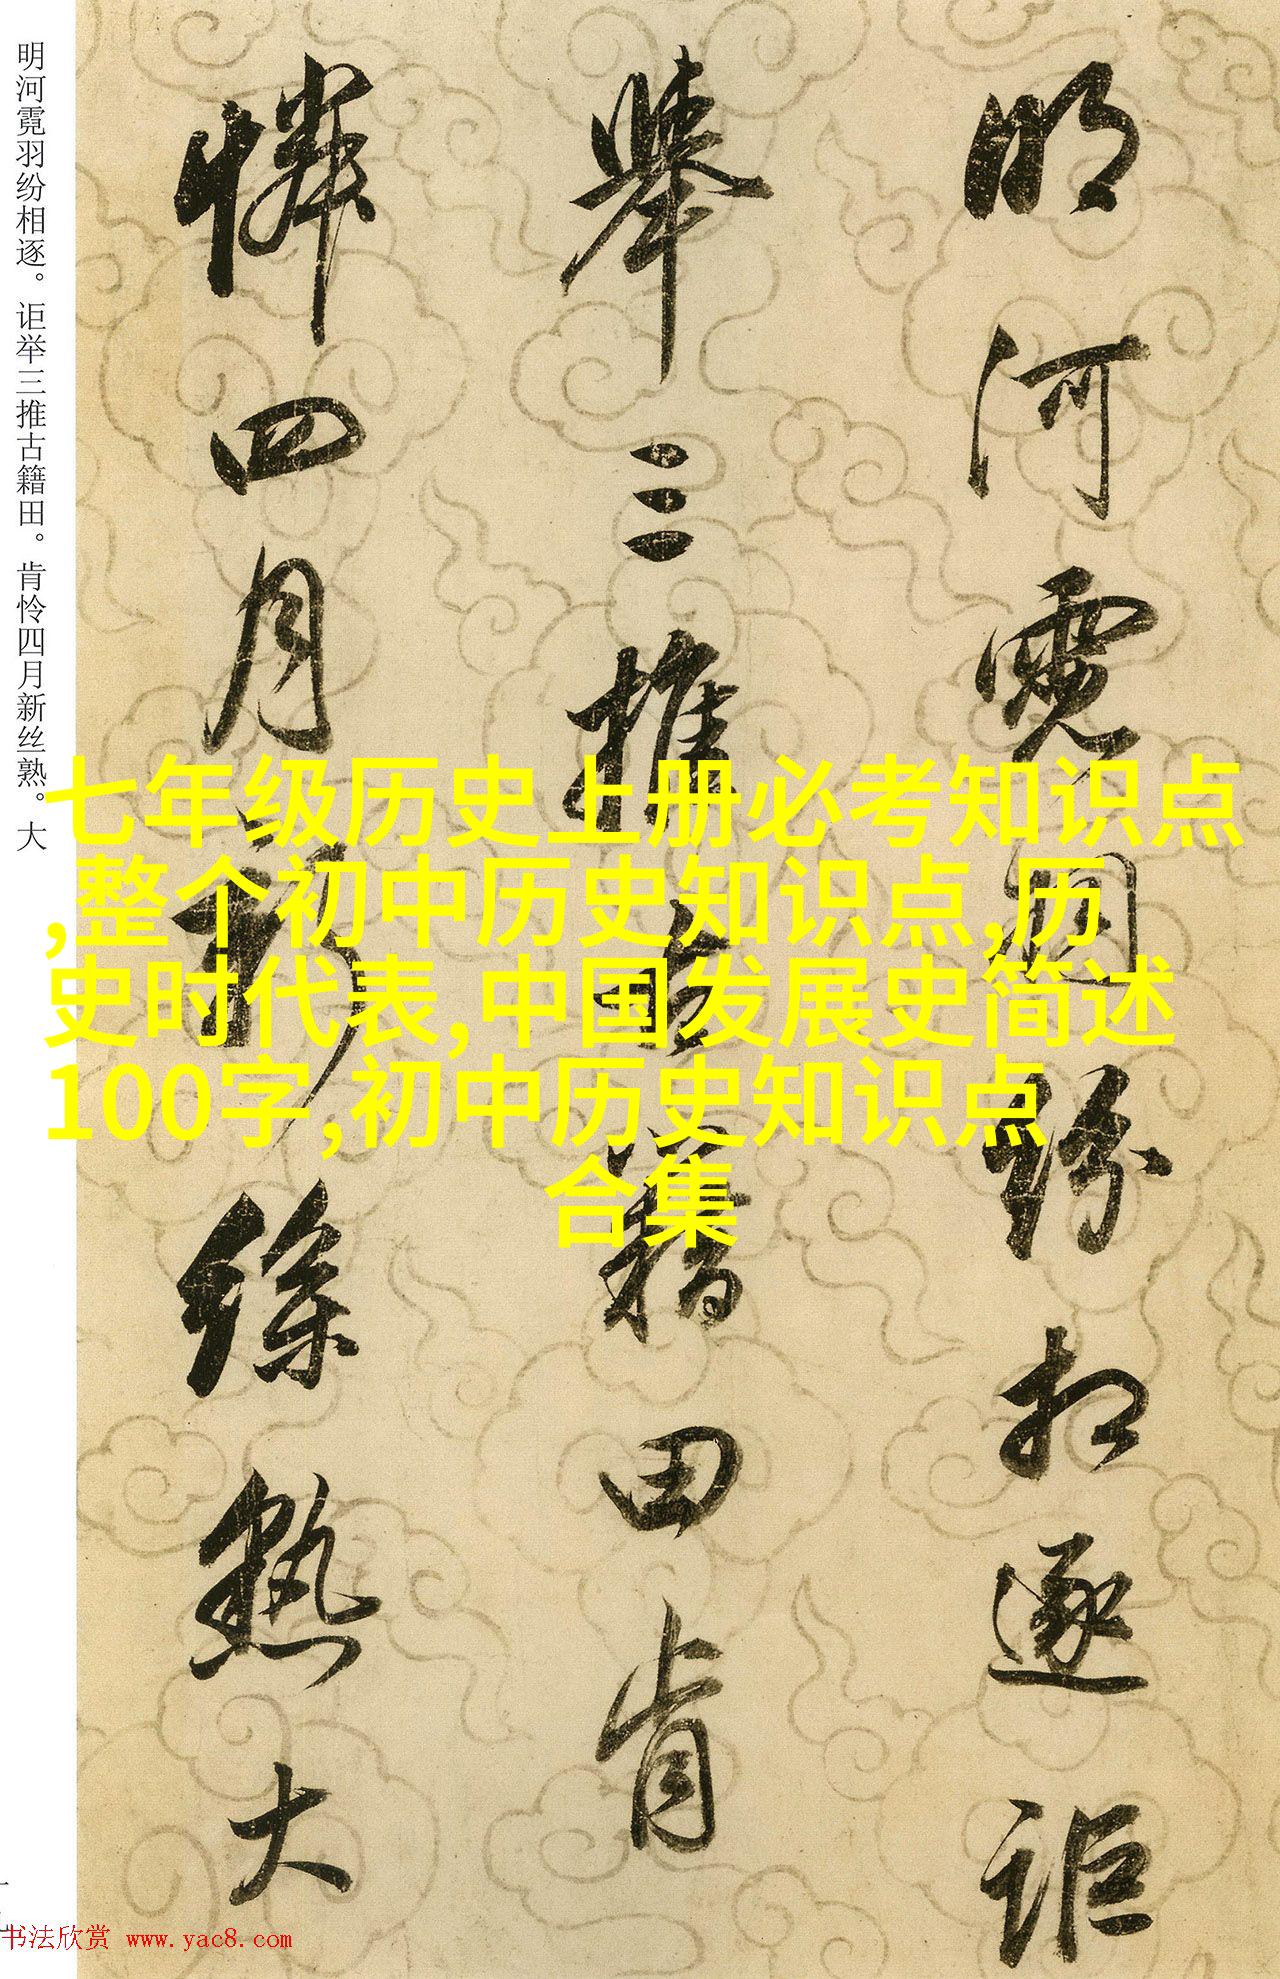 明河霓羽纷相逐。讵举三推古籍田。肯怜四月新丝熟。大
明河霓羽纷相逐讵
举三推古籍田肯
怜四月新丝熟大
七年级历史上册必考知识点
,整个初中历史知识点,历
史时代表,中国发展史简述
100字,初中历史知识点
合集
书法欣赏 www.yac8.com